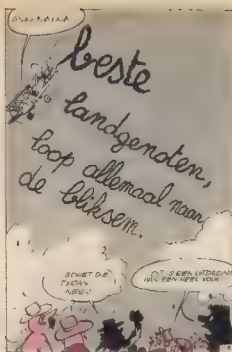 beste
landgenoten,
loop allemaal naar
de bliksem.
SCHIET DIE
TYRAN
NEER
DIT IS EEN UITDAGING
AAN EEN HEEL VOLK